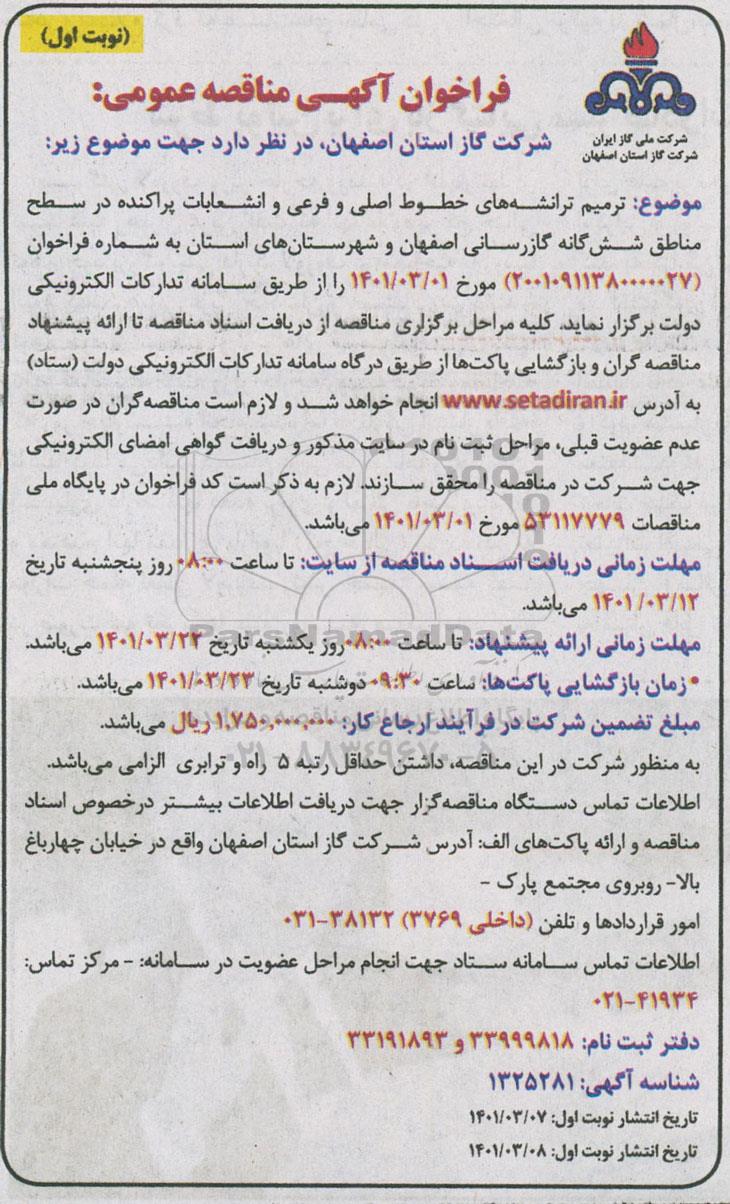 (نوبت اول)
شرکت ملی گاز ایران
شرکت گاز استان اصفهان
فراخوان آگهی مناقصه عمومی:
شرکت گاز استان اصفهان، در نظر دارد جهت موضوع زیر:
موضوع: ترمیم ترانشه‌های خطوط اصلی و فرعی و انشعابات پراکنده در سطح
مناطق شش‌گانه گازرسانی اصفهان و شهرستان‌های استان به شماره فراخوان
(۲۰۰۱۰۹۱۱۳۸۰۰۰۰۲۷) مورخ ۱۴۰۱/۰۳/۰۱ را از طریق سامانه تدارکات الکترونیکی
دولت برگزار نماید. کلیه مراحل برگزاری مناقصه از دریافت اسناد مناقصه تا ارائه پیشنهاد
مناقصه گران و بازگشایی پاکت‌ها از طریق درگاه سامانه تدارکات الکترونیکی دولت (ستاد)
به آدرس www.setadiran.ir انجام خواهد شد و لازم است مناقصه‌گران در صورت
عدم عضویت قبلی، مراحل ثبت نام در سایت مذکور و دریافت گواهی امضای الکترونیکی
جهت شرکت در مناقصه را محقق سازند. لازم به ذکر است کد فراخوان در پایگاه ملی
مناقصات ۵۳۱۱۷۷۷۹ مورخ ۱۴۰۱/۰۳/۰۱ می‌باشد.
مهلت زمانی دریافت اسناد مناقصه از سایت: تا ساعت ۰۸:۰۰ روز پنجشنبه تاریخ
۱۴۰۱/۰۳/۱۲ می‌باشد.
مهلت زمانی ارائه پیشنهاد: تا ساعت ۰۸:۰۰ روز یکشنبه تاریخ ۱۴۰۱/۰۳/۲۲ می‌باشد.
•زمان بازگشایی پاکت‌ها: ساعت ۰۹:۳۰ دوشنبه تاریخ ۱۴۰۱/۰۳/۲۳ می‌باشد.
مبلغ تضمین شرکت در فرآیند ارجاع کار: ۱,۷۵۰,۰۰۰,۰۰۰ ریال می‌باشد.
به منظور شرکت در این مناقصه، داشتن حداقل رتبه ۵ راه و ترابری الزامی می‌باشد.
اطلاعات تماس دستگاه مناقصه‌گزار جهت دریافت اطلاعات بیشتر درخصوص اسناد
مناقصه و ارائه پاکت‌های الف: آدرس شرکت گاز استان اصفهان واقع در خیابان چهارباغ
بالا- روبروی مجتمع پارک -
امور قراردادها و تلفن (داخلی ۳۷۶۹) ۳۸۱۳۲-۰۳۱
اطلاعات تماس سامانه ستاد جهت انجام مراحل عضویت در سامانه: - مرکز تماس:
۴۱۹۳۴-۰۲۱
دفتر ثبت نام: ۳۳۹۹۹۸۱۸ و ۳۳۱۹۱۸۹۳
شناسه آگهی: ۱۳۲۵۲۸۱
تاریخ انتشار نوبت اول: ۱۴۰۱/۰۳/۰۷
تاریخ انتشار نوبت اول: ۱۴۰۱/۰۳/۰۸
ParsNamadData
۰۲۱-۸۸۳۴۹۶۷۰-۵